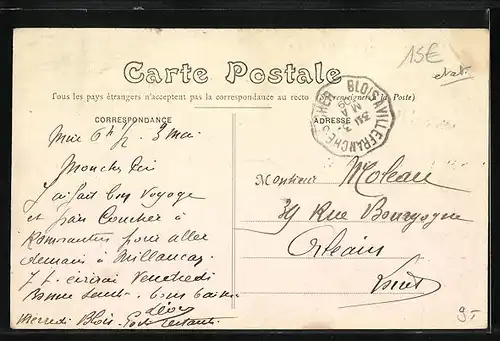 15€
état
Carte Postale
Tous les pays étrangers n'acceptent pas la correspondance au recto (Se renseigner à la Poste)
CORRESPONDANCE
ADRESSE
BLOIS A VILLEFRANCHE-S-CHER
31 MA 09
6h 1/2 3 mai
J'ai fait bon voyage
et coucher à
Romorantin pour aller
demain à Millançay
Je t'écrirai Vendredi
Bonne santé bons baisers
Léon
Mercredi Blois
Monsieur Moleau
39 Rue Bourgogne
Orléans
Loiret